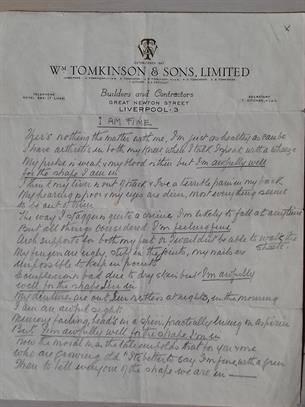 ESTABLISHED 1867
WM TOMKINSON & SONS, LIMITED
Builders and Contractors
TELEPHONE
GREAT NEWTON STREET
SECRETARY
LIVERPOOL · 3
I AM FINE
There's nothing the matter with me, I'm just as healthy as can be
I have arthritis in both my knees when I talk I speak with a wheeze
My pulse is weak & my blood is thin but I'm awfully well
for the shape I am in
My liver is out of & I've a terrible pain in my back
My hearing is poor & my eyes are dim, most everything seems
to be out of trim
The way I stagger is quite a crime I'm likely to fall at anytime
But all things considered I'm feeling fine
Arch supports for both my feet or I wouldn't be able to walk the
street
My fingers are ugly, stiff in the joints, my nails are
impossible to keep in points
Complexion is bad due to dry skin but I'm awfully
well for the shape I'm in
My dentures are out I'm restless at night, in the morning
I am an awful sight
Memory failing, head's in a spin, practically living on aspirin
But I'm awfully well for the shape I'm in
Now the moral is as the tale unfolds that for you & me
who are growing old It's better to say I'm fine with a grin
Than to tell everyone of the shape we are in